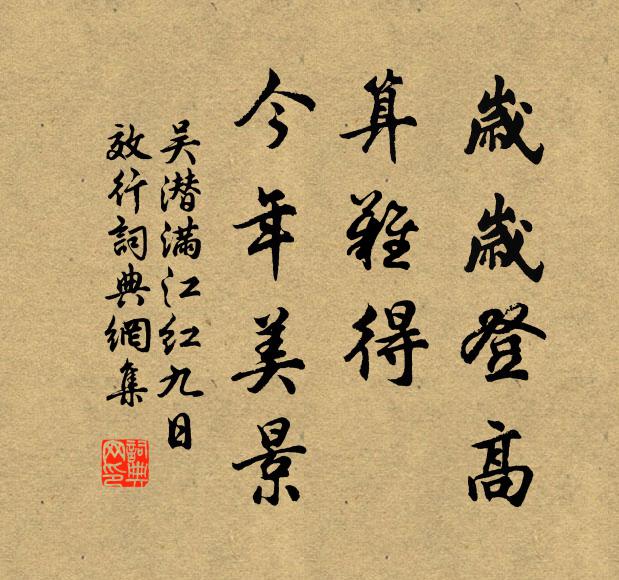 歲歲登高
算難得
今年美景
吴潜满江红九日
效行詞典網集
詞典
网印